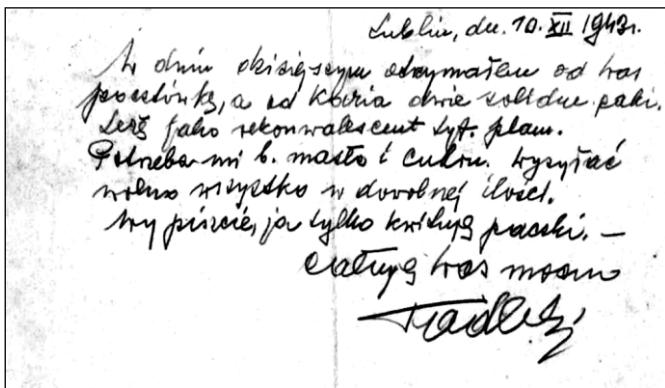 Lublin, dn. 10.XII 1943r.
W dniu dzisiejszym otrzymałem od Was
pocztówkę, a od Kazia dwie solidne paki.
Leżę jako rekonwalescent tyf. plam.
Potrzeba mi b. masła i cukru. Wysyłać
wolno wszystko w dowolnej ilości.
Wy piszcie, ja tylko kwituję paczki. —
Całuję Was mocno